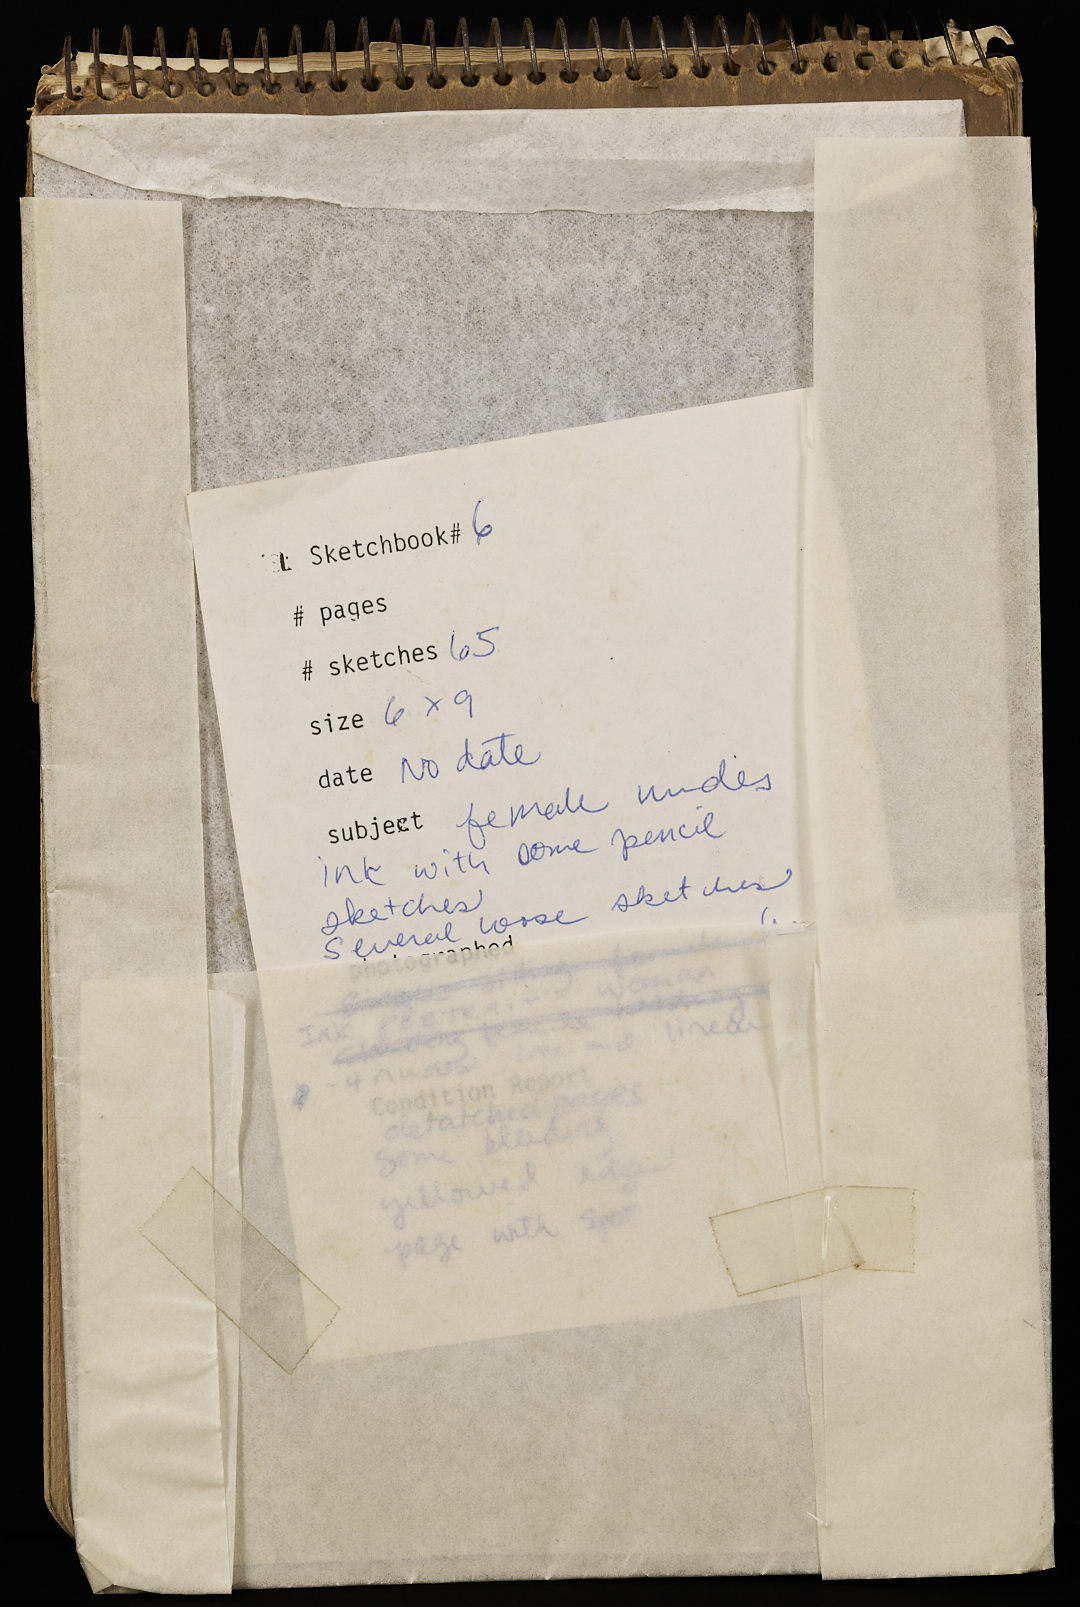 Sketchbook# 6
# pages
# sketches 65
size 6 x 9
date No date
subject female nudes
ink with some pencil
sketches
Several loose sketches
photographed
INK PORTRAIT - WOMAN
- 4 nudes and linear
Condition Report
detatched pages
Some bleeding
yellowed edges
page with spot